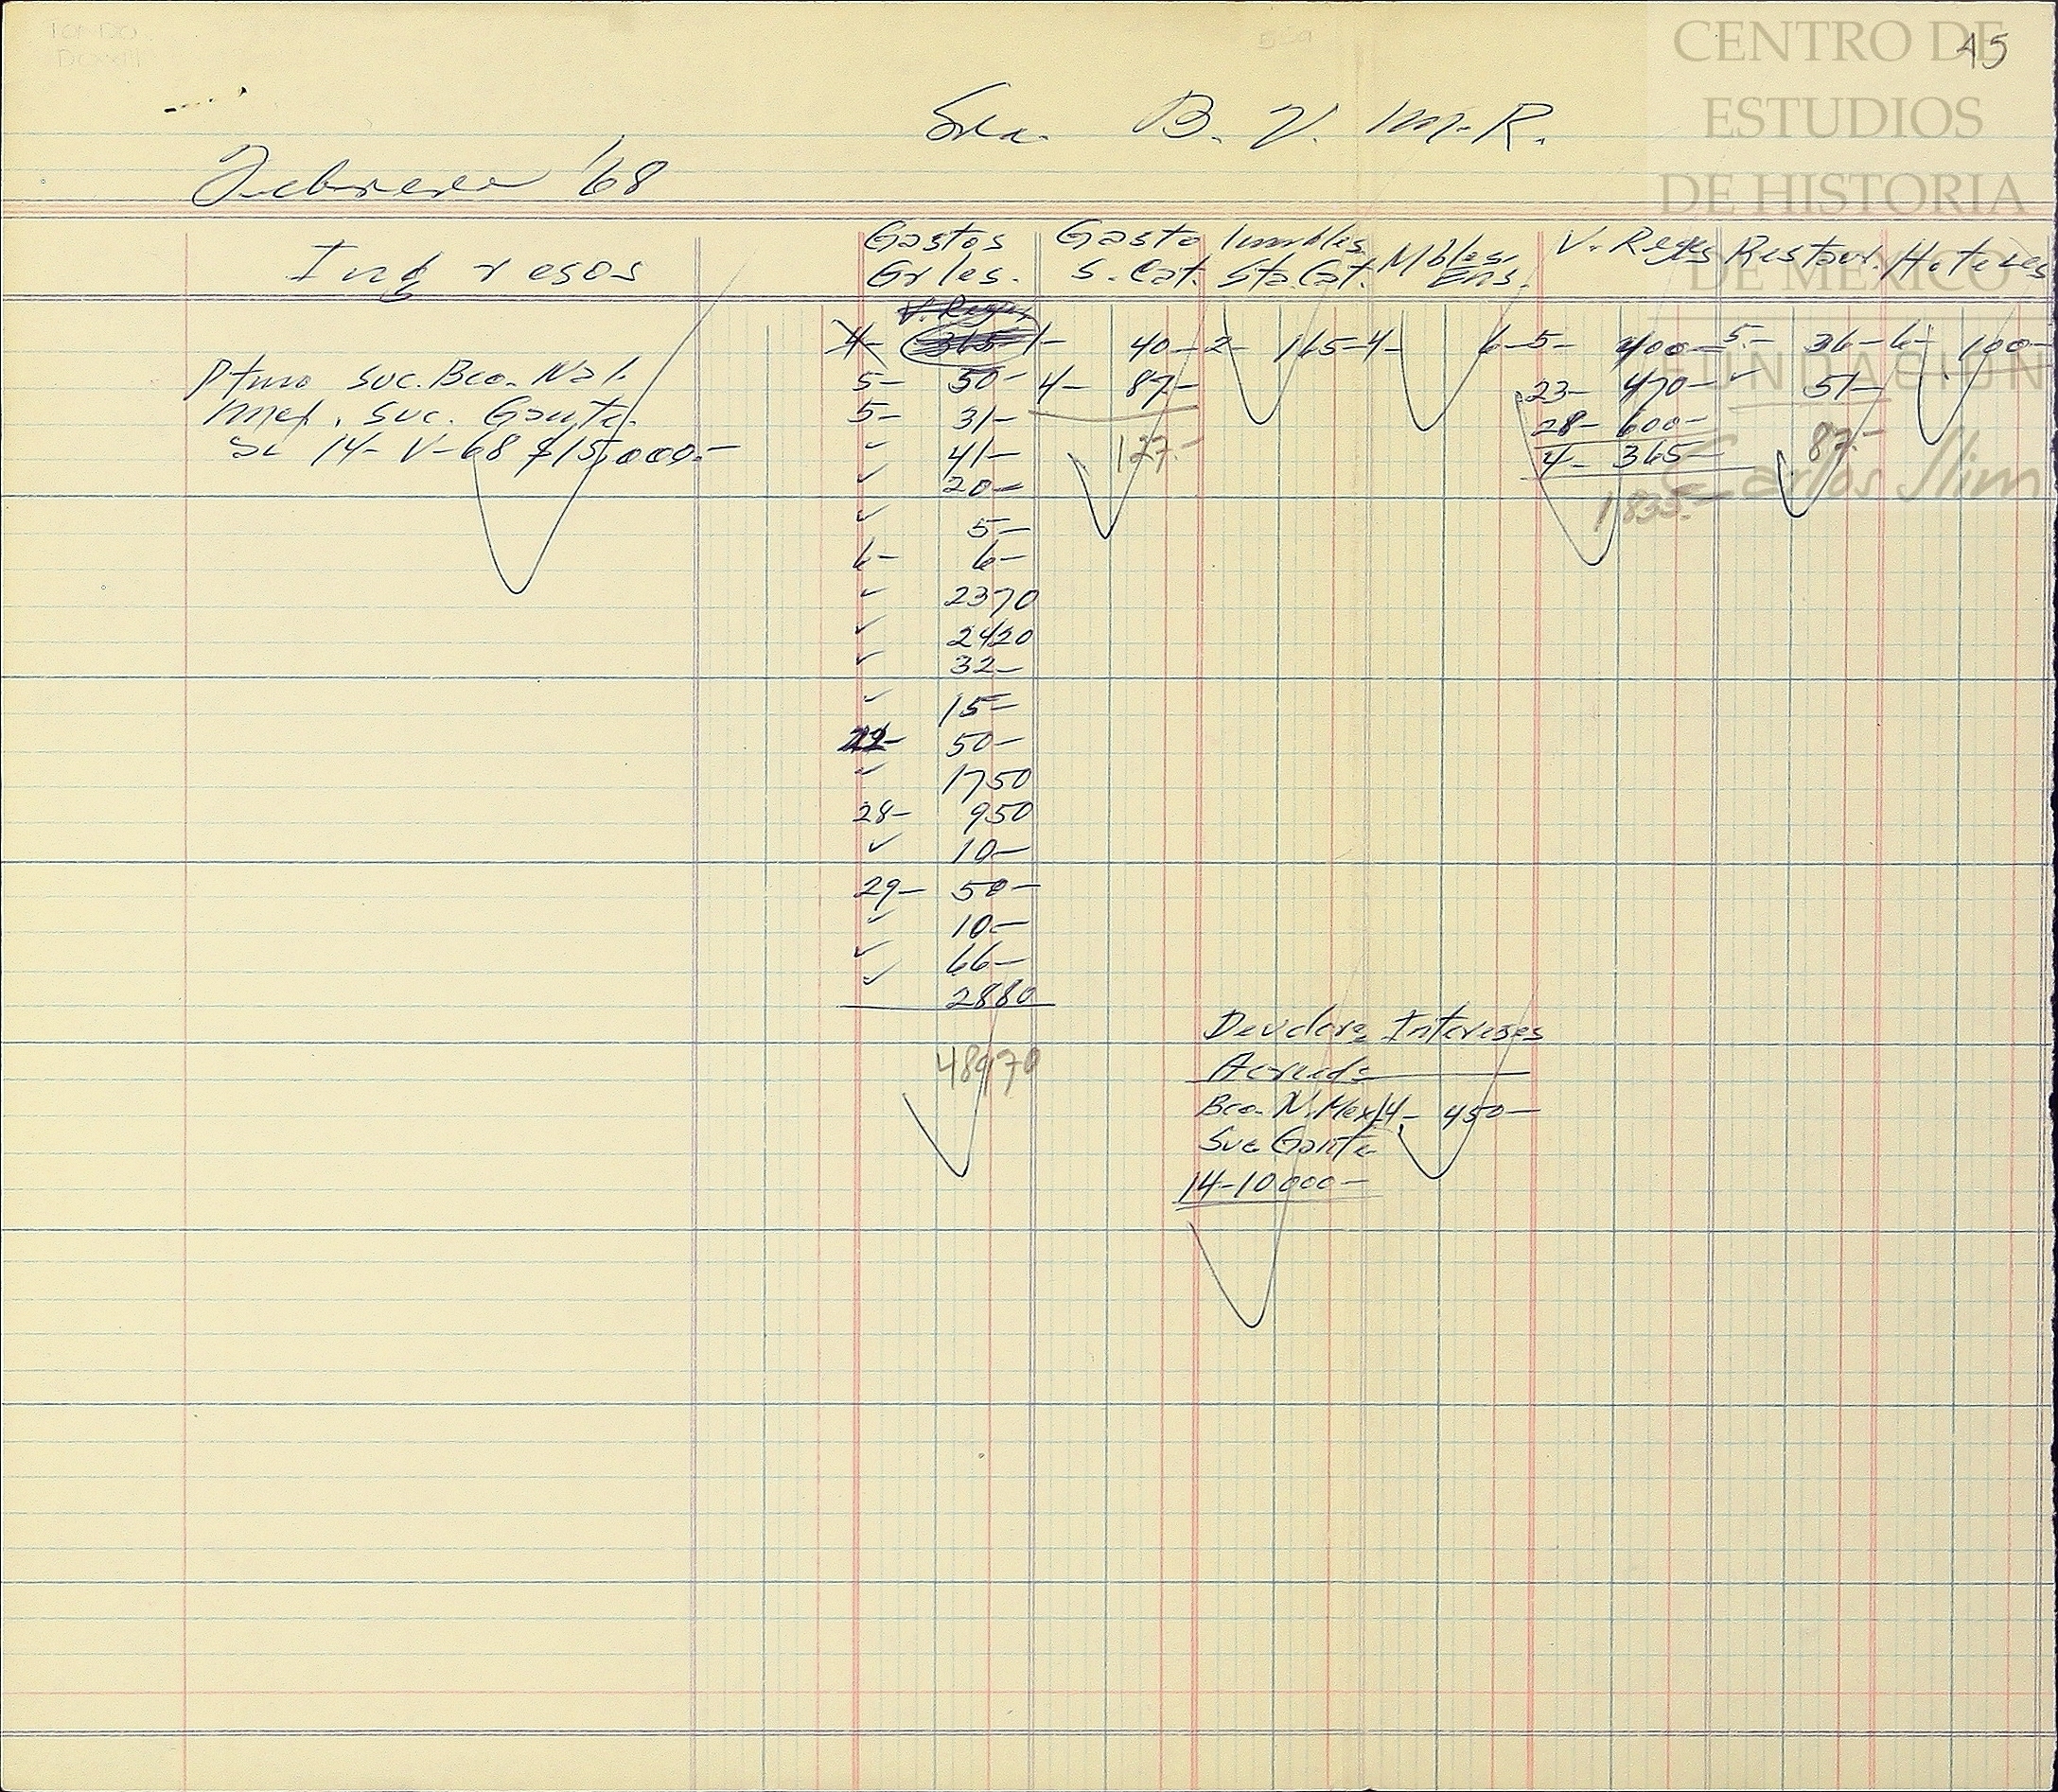 45
Sra. B. V. M. R.
Febrero '68
Ingresos
Gastos Grles.
Gasto S. Cat.
Inmbles. Sta. Cat.
Mbles. Ens.
V. Reges
Restaur.
Hoteles
Ptmo Suc. Bco. Nal.
Mex. Suc. Gante.
14-V-68 $15,000.-
V. Reges
4- 365-
5- 50-
5- 31-
" 41-
" 20-
" 5-
6- 6-
" 2370
" 2420
" 32-
" 15-
22- 50-
" 1750
28- 950
" 10-
29- 50-
" 10-
" 66-
" 2880
48970
1- 40-
4- 87-
127.-
2- 165-
4- 6-
5- 400-
23- 470-
28- 600-
4- 365-
1,835.-
5- 36-
" 51-
87.-
6- 100-
Deudora Intereses
Acreed.
Bco. N. Mex 14- 450-
Suc Gante
14-10000-
CENTRO DE
ESTUDIOS
DE HISTORIA
DE MEXICO
FUNDACIÓN
Carlos Slim